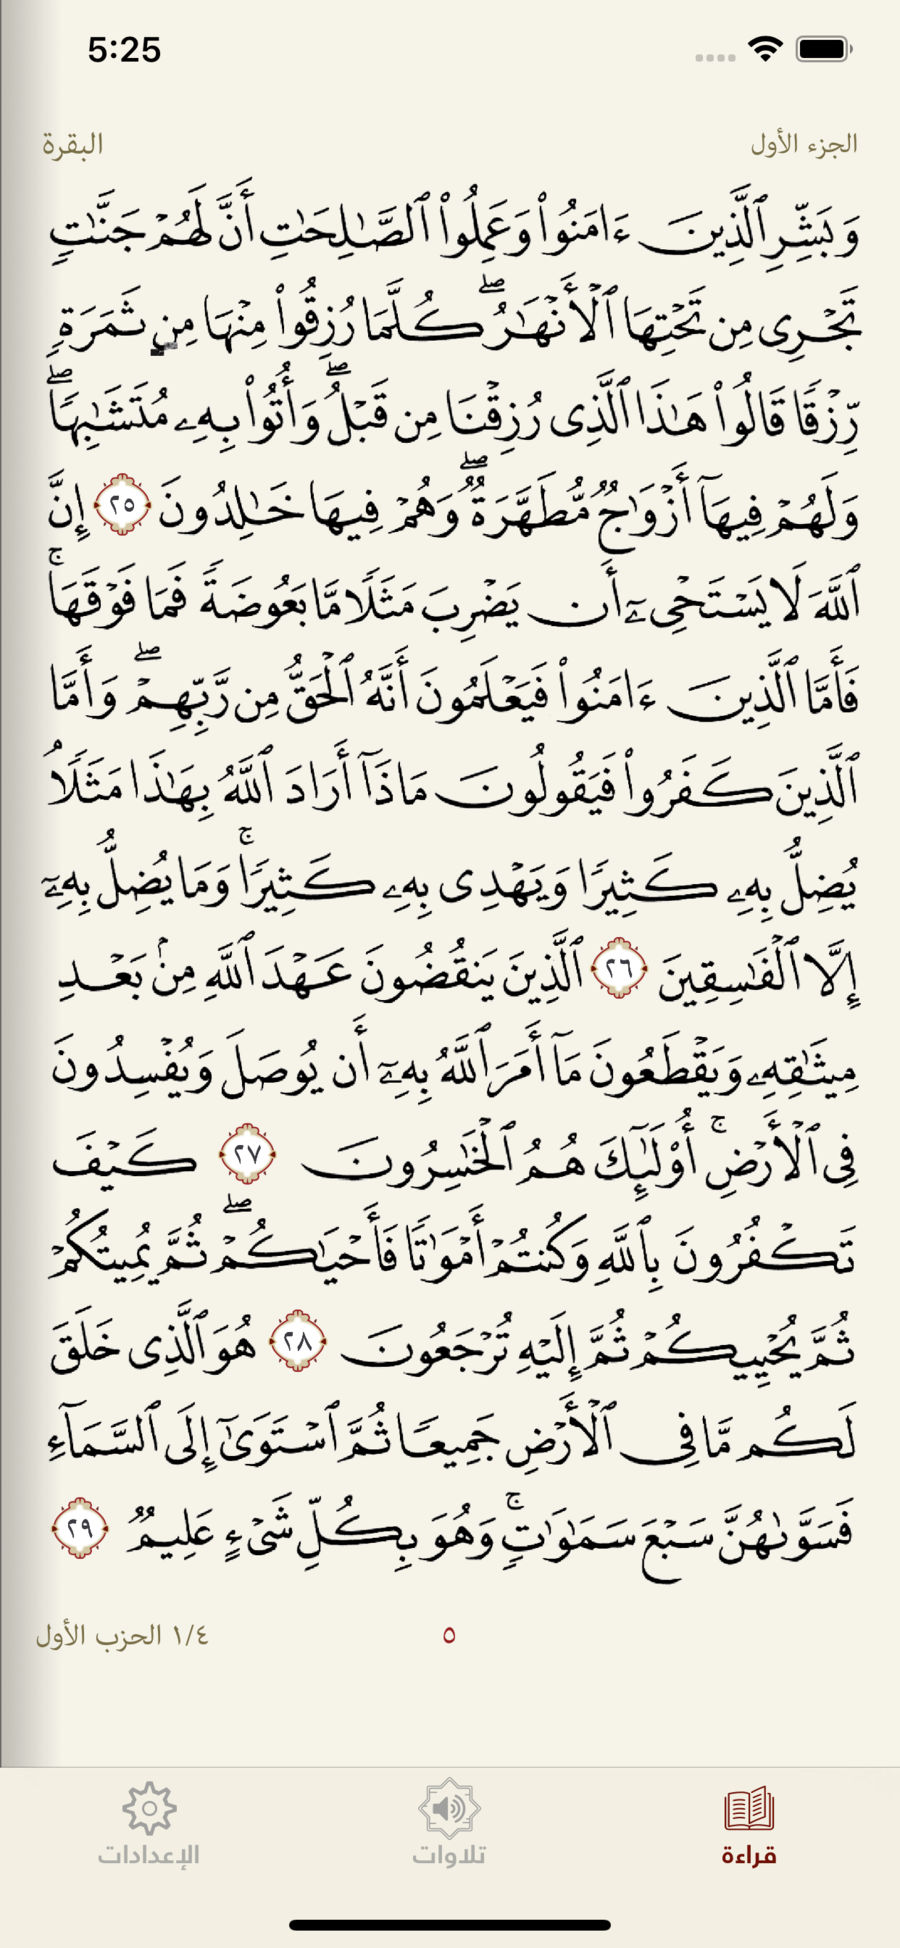 5:25
الجزء الأول
البقرة
وَبَشِّرِ ٱلَّذِينَ ءَامَنُوا۟ وَعَمِلُوا۟ ٱلصَّـٰلِحَـٰتِ أَنَّ لَهُمْ جَنَّـٰتٍ
تَجْرِى مِن تَحْتِهَا ٱلْأَنْهَـٰرُ ۖ كُلَّمَا رُزِقُوا۟ مِنْهَا مِن ثَمَرَةٍ
رِّزْقًا قَالُوا۟ هَـٰذَا ٱلَّذِى رُزِقْنَا مِن قَبْلُ ۖ وَأُتُوا۟ بِهِۦ مُتَشَـٰبِهًا ۖ
وَلَهُمْ فِيهَآ أَزْوَٰجٌ مُّطَهَّرَةٌ ۖ وَهُمْ فِيهَا خَـٰلِدُونَ ٢٥ إِنَّ
ٱللَّهَ لَا يَسْتَحْىِۦٓ أَن يَضْرِبَ مَثَلًا مَّا بَعُوضَةً فَمَا فَوْقَهَا ۚ
فَأَمَّا ٱلَّذِينَ ءَامَنُوا۟ فَيَعْلَمُونَ أَنَّهُ ٱلْحَقُّ مِن رَّبِّهِمْ ۖ وَأَمَّا
ٱلَّذِينَ كَفَرُوا۟ فَيَقُولُونَ مَاذَآ أَرَادَ ٱللَّهُ بِهَـٰذَا مَثَلًا ۘ
يُضِلُّ بِهِۦ كَثِيرًا وَيَهْدِى بِهِۦ كَثِيرًا ۚ وَمَا يُضِلُّ بِهِۦٓ
إِلَّا ٱلْفَـٰسِقِينَ ٢٦ ٱلَّذِينَ يَنقُضُونَ عَهْدَ ٱللَّهِ مِنۢ بَعْدِ
مِيثَـٰقِهِۦ وَيَقْطَعُونَ مَآ أَمَرَ ٱللَّهُ بِهِۦٓ أَن يُوصَلَ وَيُفْسِدُونَ
فِى ٱلْأَرْضِ ۚ أُو۟لَـٰٓئِكَ هُمُ ٱلْخَـٰسِرُونَ ٢٧ كَيْفَ
تَكْفُرُونَ بِٱللَّهِ وَكُنتُمْ أَمْوَٰتًا فَأَحْيَـٰكُمْ ۖ ثُمَّ يُمِيتُكُمْ
ثُمَّ يُحْيِيكُمْ ثُمَّ إِلَيْهِ تُرْجَعُونَ ٢٨ هُوَ ٱلَّذِى خَلَقَ
لَكُم مَّا فِى ٱلْأَرْضِ جَمِيعًا ثُمَّ ٱسْتَوَىٰٓ إِلَى ٱلسَّمَآءِ
فَسَوَّىٰهُنَّ سَبْعَ سَمَـٰوَٰتٍ ۚ وَهُوَ بِكُلِّ شَىْءٍ عَلِيمٌ ٢٩
٥
١/٤ الحزب الأول
قراءة
تلاوات
الإعدادات